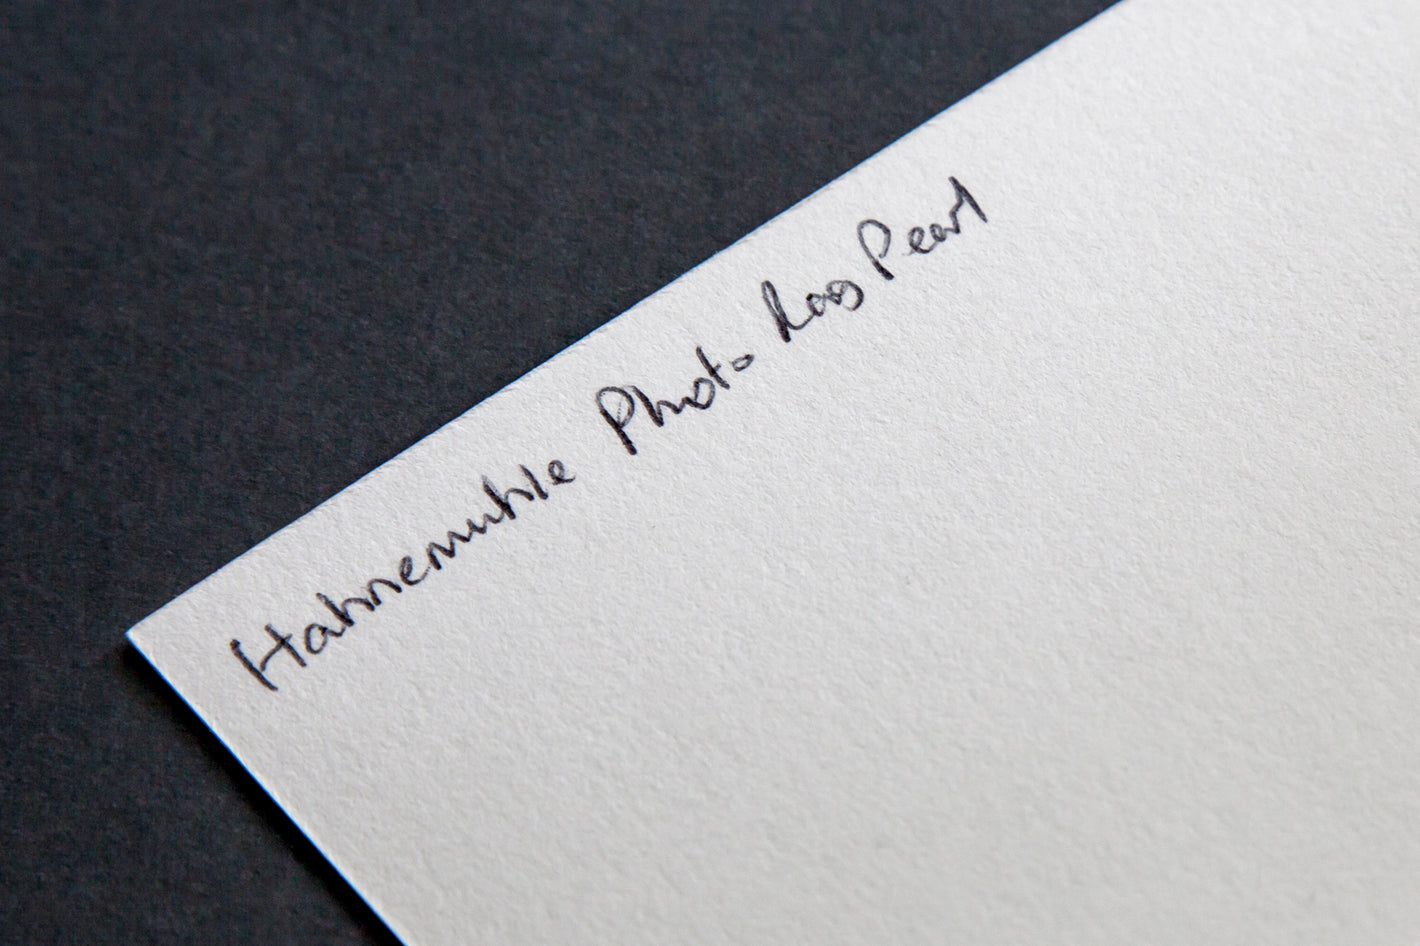 Hahnemuhle Photo Rag Pearl